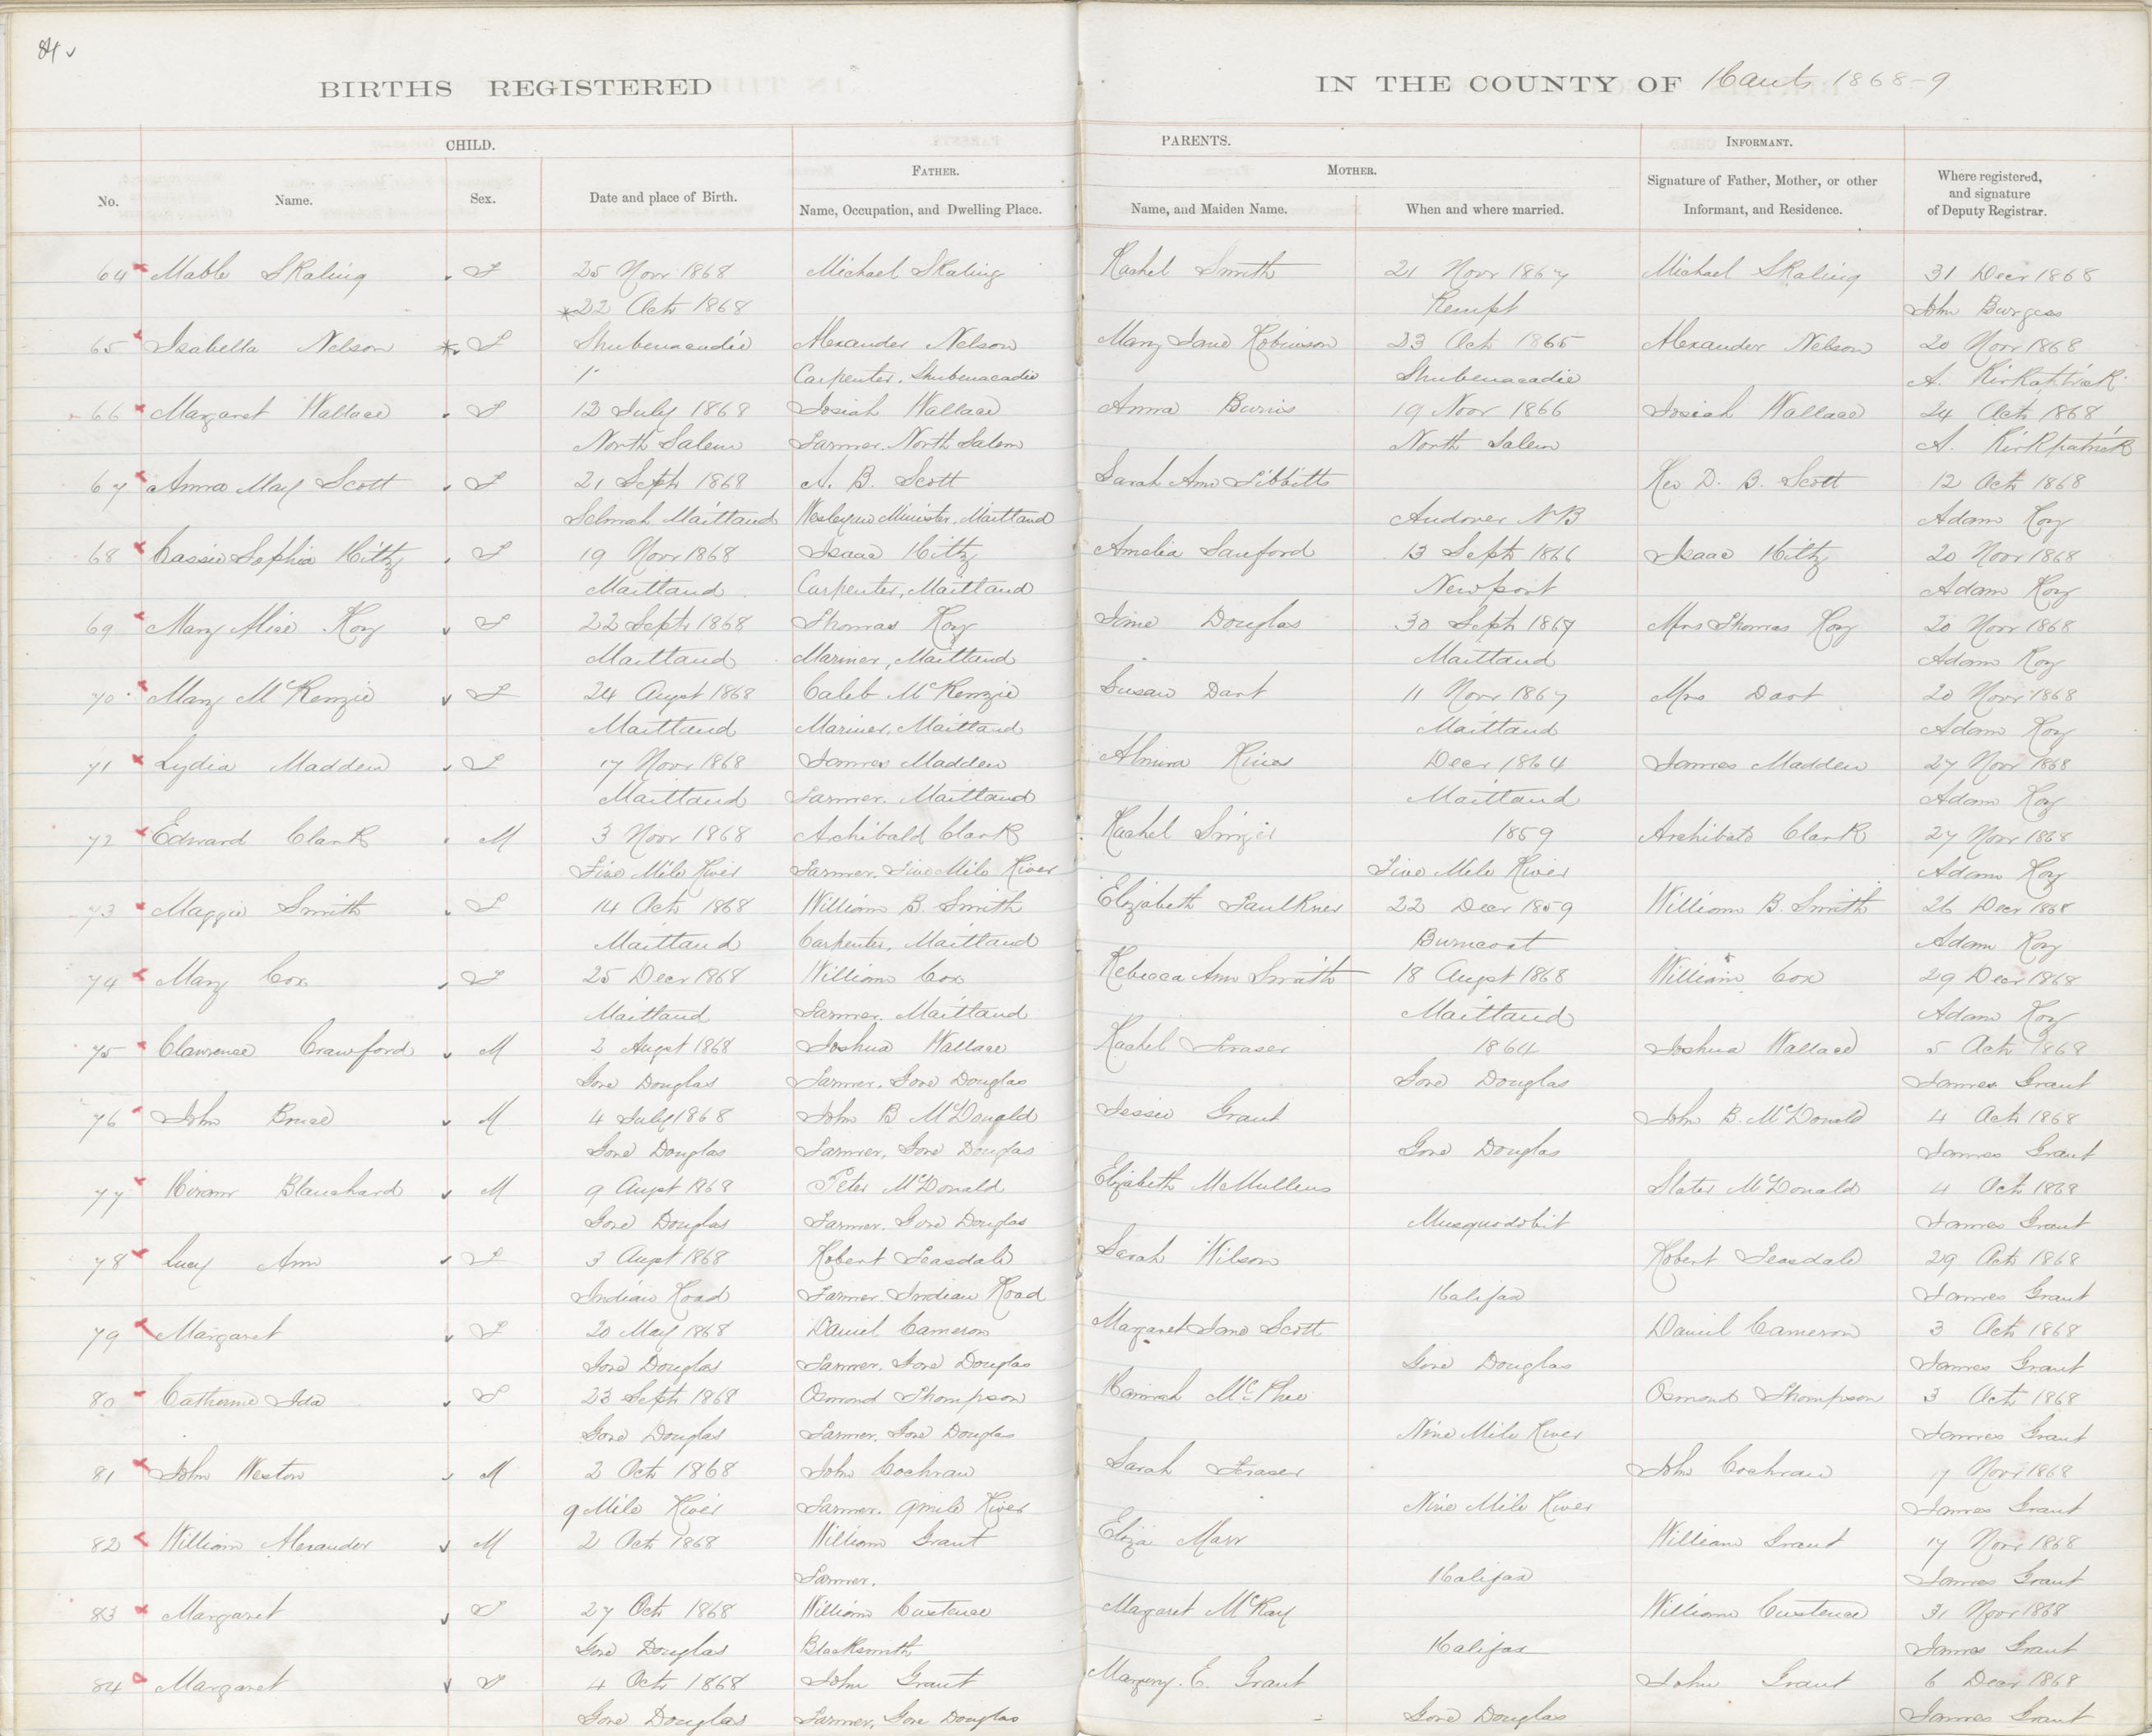 84 ✓
BIRTHS REGISTERED IN THE COUNTY OF Hants 1868-9
CHILD. PARENTS. INFORMANT.
FATHER. MOTHER.
No. Name. Sex. Date and place of Birth. Name, Occupation, and Dwelling Place. Name, and Maiden Name. When and where married. Signature of Father, Mother, or other Informant, and Residence. Where registered, and signature of Deputy Registrar.
64 Mable Skaling F 25 Novr 1868 Michael Skaling Rachel Smith 21 Novr 1867 Michael Skaling 31 Decr 1868
*22 Octr 1868 Kempt John Burgess
65 Isabella Nelson * F Shubenacadie Alexander Nelson Mary Jane Robinson 23 Oct 1865 Alexander Nelson 20 Novr 1868
Carpenter. Shubenacadie Shubenacadie A. Kirkpatrick
66 Margaret Wallace F 12 July 1868 Josiah Wallace Anna Burris 19 Novr 1866 Josiah Wallace 24 Octr 1868
North Salem Farmer. North Salem North Salem A. Kirkpatrick
67 Anna May Scott F 21 Septr 1868 A. B. Scott Sarah Ann Tibbitts Rev D. B. Scott 12 Octr 1868
Selmah Maitland Wesleyan Minister, Maitland Andover N B Adam Roy
68 Cassie Sophia Hiltz F 19 Novr 1868 Isaac Hiltz Amelia Sanford 13 Septr 1866 Isaac Hiltz 20 Novr 1868
Maitland Carpenter, Maitland Newport Adam Roy
69 Mary Alice Roy F 22 Septr 1868 Thomas Roy Jane Douglas 30 Septr 1867 Mrs Thomas Roy 20 Novr 1868
Maitland Mariner, Maitland Maitland Adam Roy
70 Mary McKenzie F 24 Augst 1868 Caleb McKenzie Susan Dart 11 Novr 1867 Mrs Dart 20 Novr 1868
Maitland Mariner, Maitland Maitland Adam Roy
71 Lydia Madden F 17 Novr 1868 James Madden Almira Rines Decr 1864 James Madden 27 Novr 1868
Maitland Farmer. Maitland Maitland Adam Roy
72 Edward Clark M 3 Novr 1868 Archibald Clark Rachel 1859 Archibald Clark 27 Novr 1868
Five Mile River Farmer. Five Mile River Five Mile River Adam Roy
73 Maggie Smith F 14 Octr 1868 William B. Smith Elizabeth Faulkner 22 Decr 1859 William B. Smith 26 Decr 1868
Maitland Carpenter, Maitland Burncoat Adam Roy
74 Mary Cox F 25 Decr 1868 William Cox Rebecca Ann Smith 18 Augst 1868 William Cox 29 Decr 1868
Maitland Farmer. Maitland Maitland Adam Roy
75 Clawrence Crawford M 2 Augst 1868 Joshua Wallace Rachel Fraser 1864 Joshua Wallace 5 Octr 1868
Gore Douglas Farmer, Gore Douglas Gore Douglas James Grant
76 John Bruce M 4 July 1868 John B McDonald Jessie Grant John B. McDonald 4 Octr 1868
Gore Douglas Farmer, Gore Douglas Gore Douglas James Grant
77 Hiram Blanchard M 9 Augst 1868 Peter McDonald Elizabeth McMullens McDonald 4 Octr 1868
Gore Douglas Farmer. Gore Douglas Musquodobit James Grant
78 Lucy Ann F 3 Augst 1868 Robert Teasdale Sarah Wilson Robert Teasdale 29 Octr 1868
Indian Road Farmer. Indian Road Halifax James Grant
79 Margaret F 20 May 1868 Daniel Cameron Margaret Jane Scott Daniel Cameron 3 Octr 1868
Gore Douglas Farmer. Gore Douglas Gore Douglas James Grant
80 Catherine Ida F 23 Septr 1868 Osmond Thompson Hannah McPhee Osmond Thompson 3 Octr 1868
Gore Douglas Farmer. Gore Douglas Nine Mile River James Grant
81 John Weston M 2 Octr 1868 John Cochran Sarah Fraser John Cochran 17 Novr 1868
9 Mile River Farmer. 9 mile River Nine Mile River James Grant
82 William Alexander M 2 Octr 1868 William Grant Eliza Marr William Grant 17 Novr 1868
Farmer. Halifax James Grant
83 Margaret F 27 Octr 1868 William Custence Margaret McKay William Custence 31 Novr 1868
Gore Douglas Blacksmith Halifax James Grant
84 Margaret F 4 Octr 1868 John Grant Margery. E. Grant John Grant 6 Decr 1868
Gore Douglas Farmer, Gore Douglas Gore Douglas James Grant